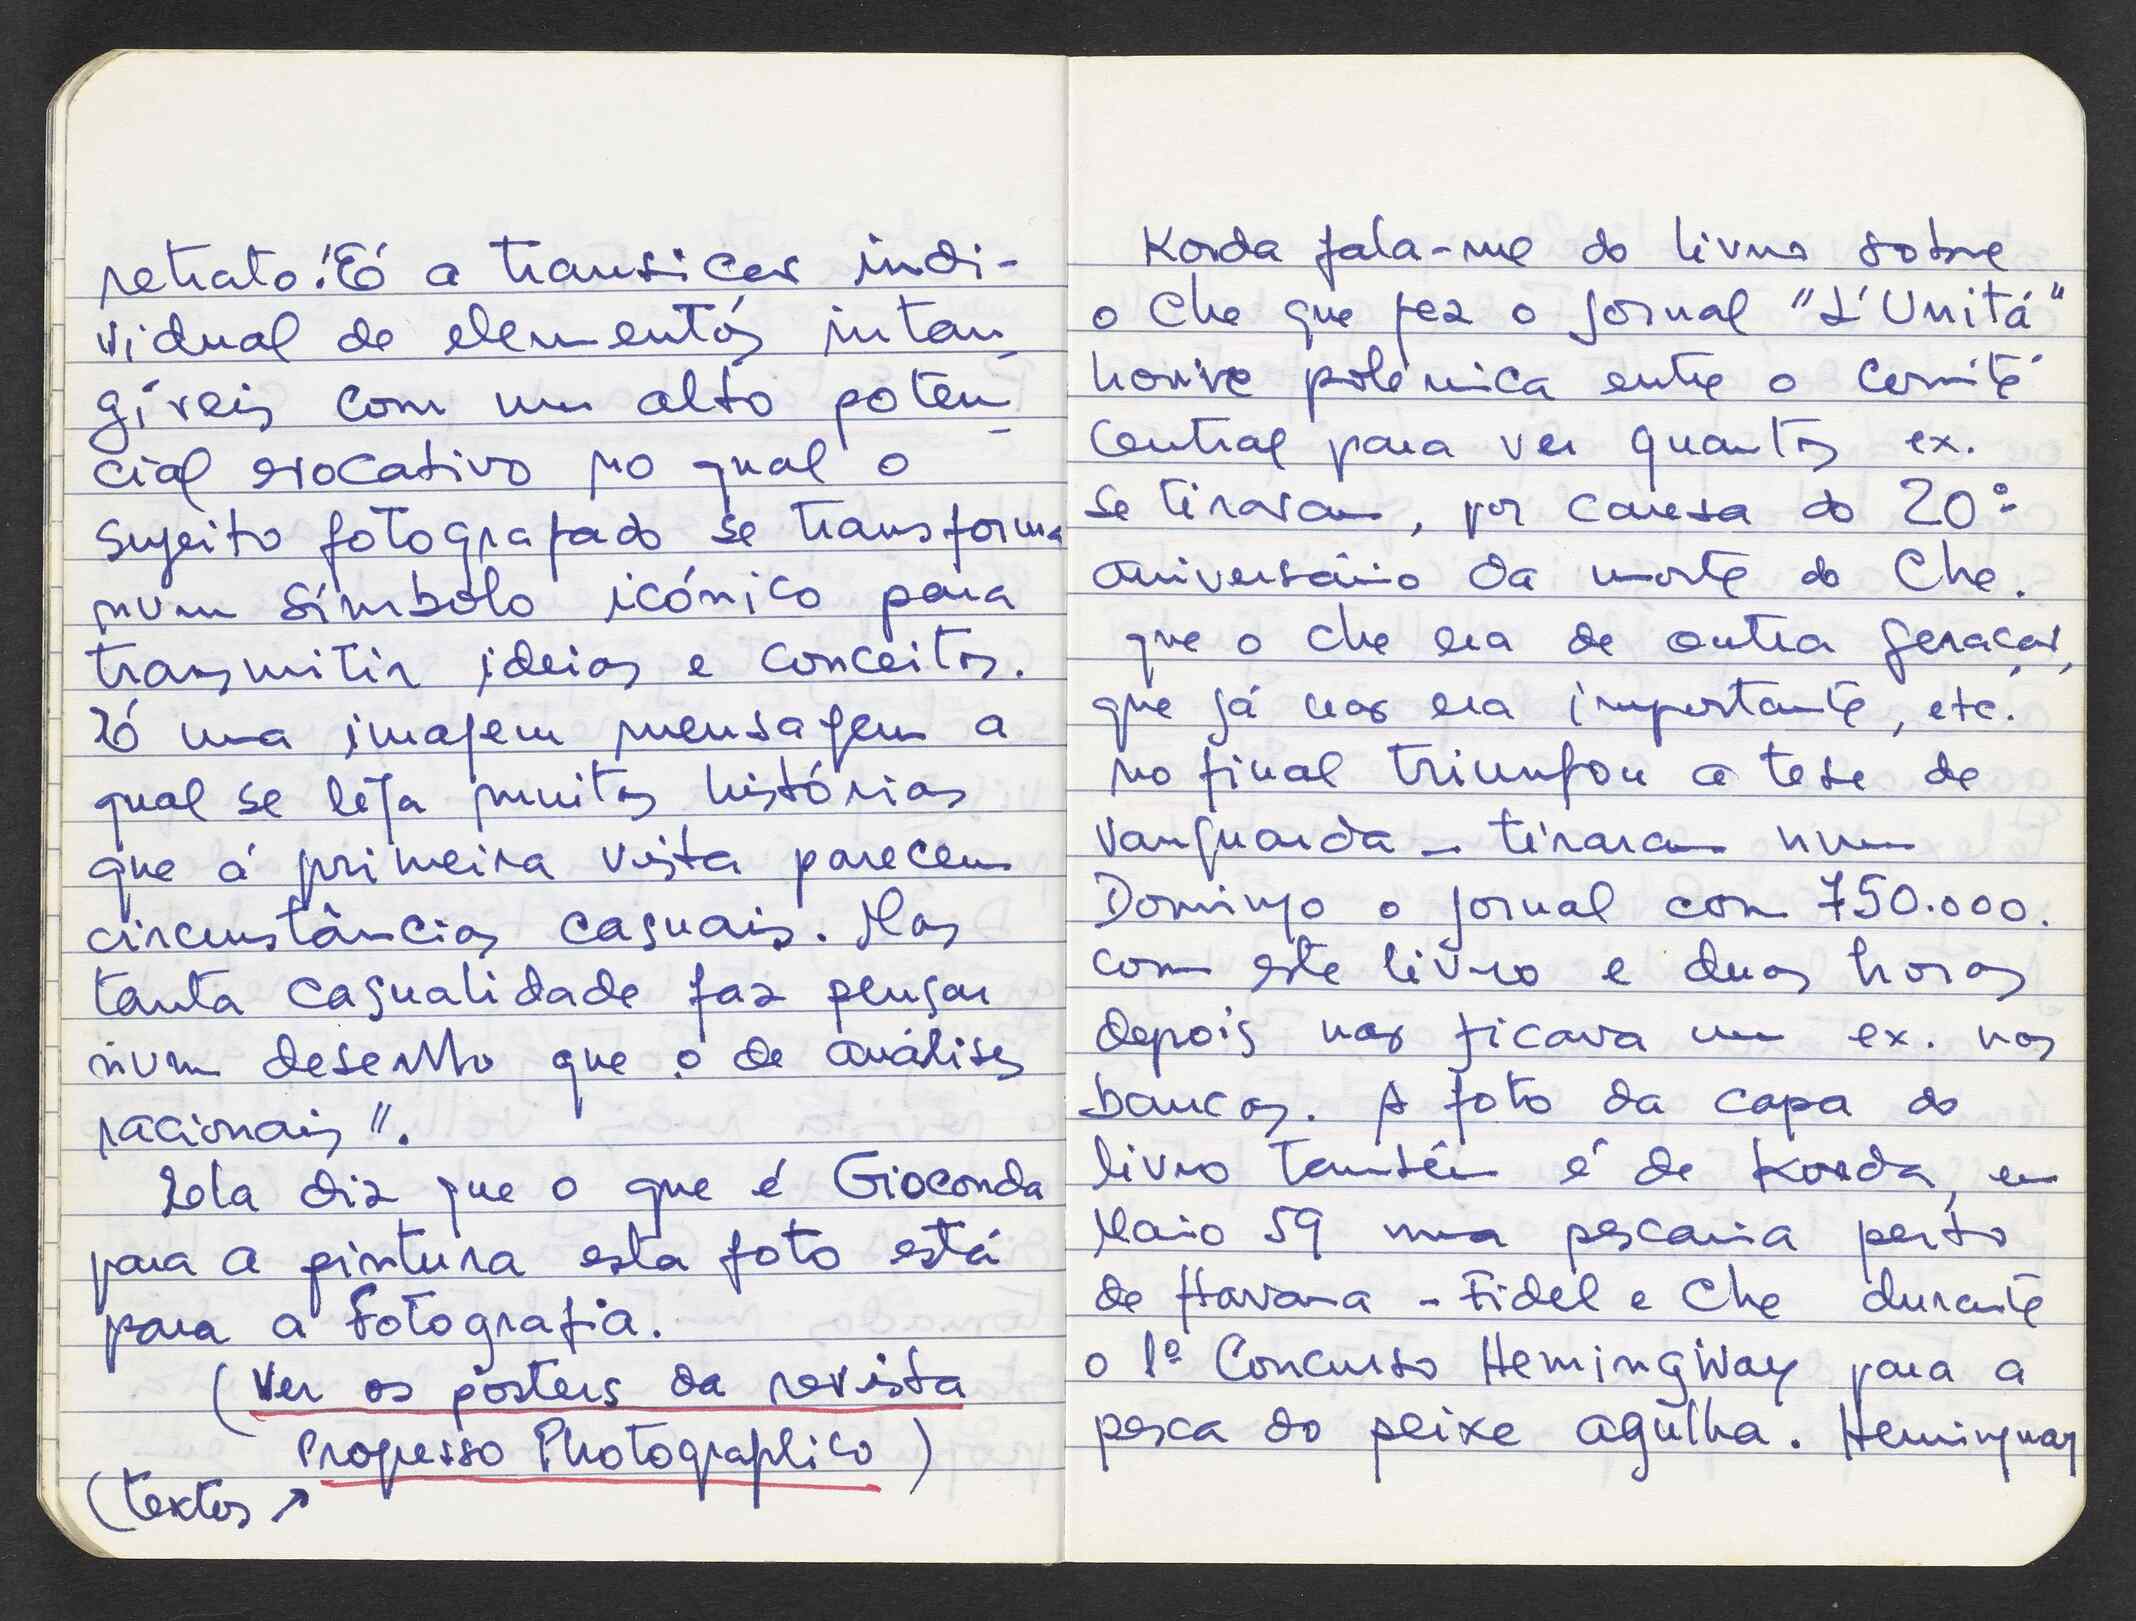 retrato: "É a transição indi-
vidual de elementos intan-
gíveis com um alto poten-
cial evocativo no qual o
sujeito fotografado se transforma
num símbolo icónico para
transmitir ideias e conceitos.
É uma imagem mensagem a
qual se liga muitas histórias
que á primeira vista parecem
circunstâncias casuais. Mas
tanta casualidade faz pensar
num desenho que o de análises
racionais".
Ela diz que o que é Gioconda
para a pintura esta foto está
para a fotografia.
(Ver os posters da revista
Progesso Photographico)
(textos ↗
Korda fala-me do livro sobre
o Che que fez o jornal "L'Unitá"
houve polémica entre o comité
central para ver quantos ex.
se tiravam, por causa do 20º
aniversário da morte do Che.
que o Che era de outra geração,
que já não era importante, etc.
no final triunfou a tese de
vanguarda - tiraram num
Domingo o jornal com 750.000.
com este livro e duas horas
depois não ficava um ex. nos
bancos. A foto da capa do
livro também é de Korda, em
Maio 59 numa pescaria perto
de Havana - Fidel e Che durante
o 1º Concurso Hemingway para a
pesca do peixe agulha. Hemingway